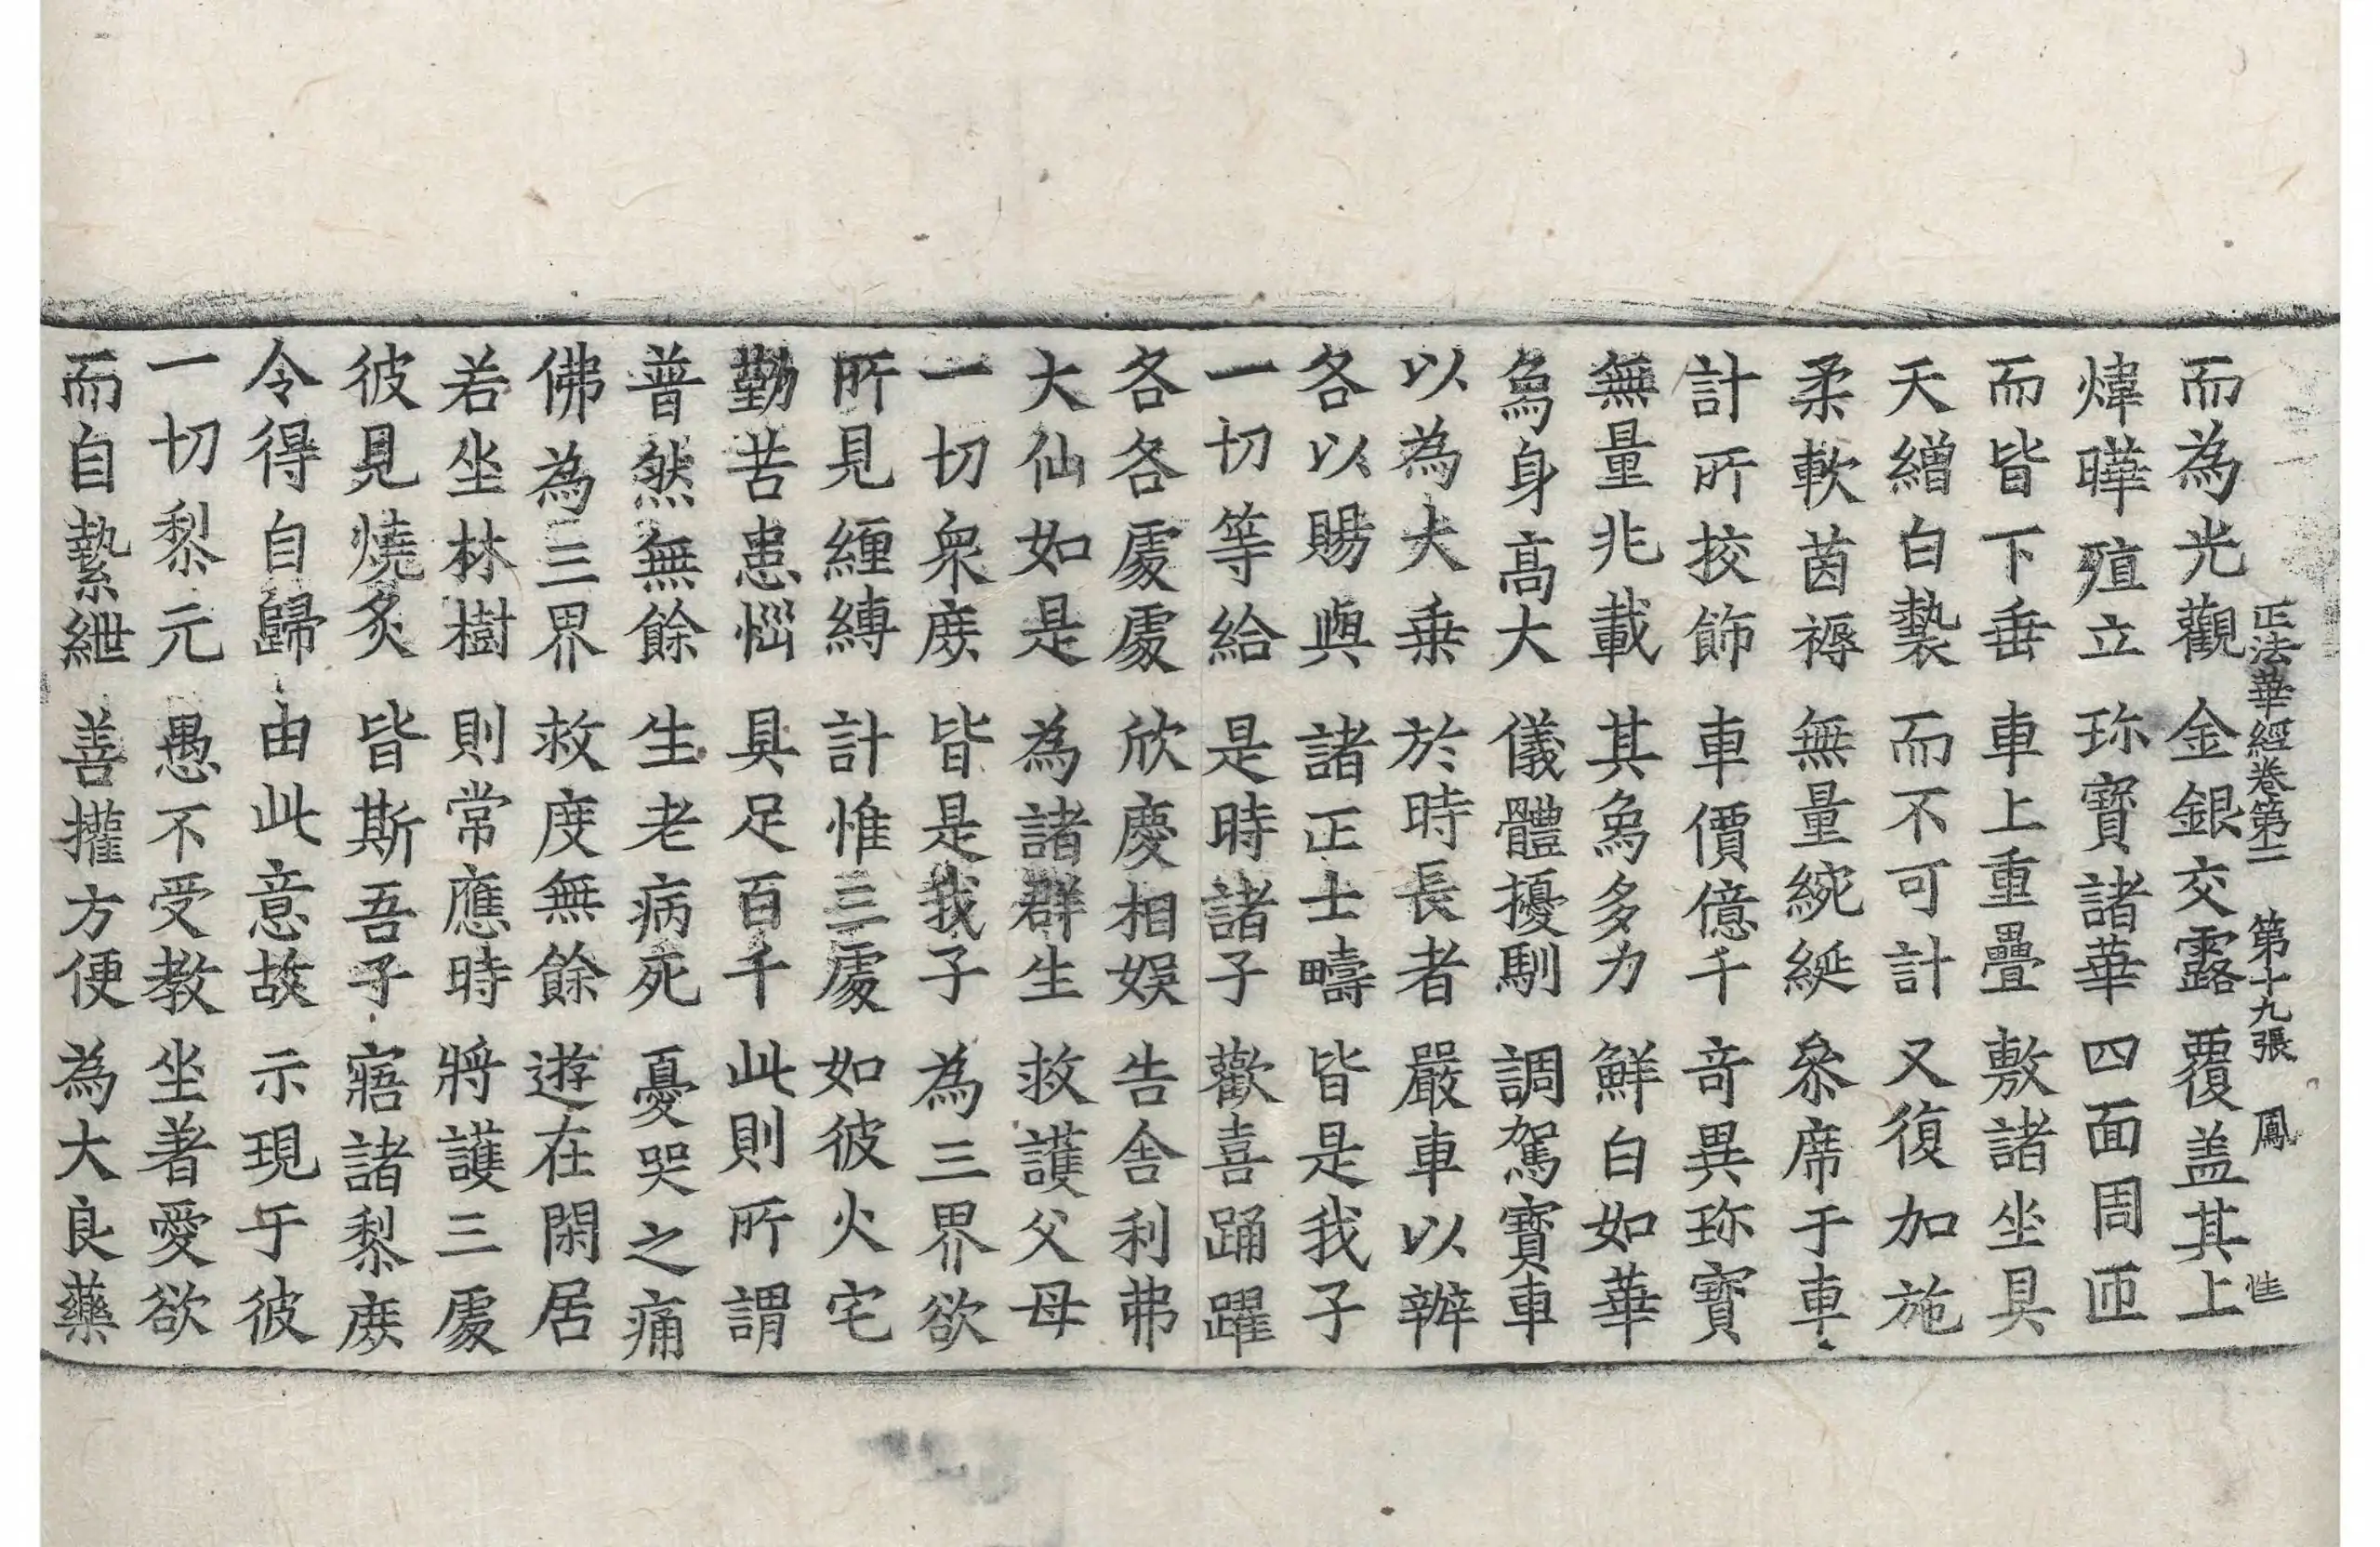 正法華經卷第二 第十九張 鳳
而為光觀 金銀交露 覆盖其上
煒曄殖立 珎寶諸華 四面周匝
而皆下垂 車上重疊 敷諸坐具
天繒白㲲 而不可計 又復加施
柔軟茵褥 無量綩綖 叅席于車
計所挍飾 車價億千 奇異珎寶
無量兆載 其象多力 鮮白如華
象身高大 儀體擾馴 調駕寶車
以為大乗 於時長者 嚴車以辦
各以賜與 諸正士疇 皆是我子
一切等給 是時諸子 歡喜踊躍
各各處處 欣慶相娛 告舎利弗
大仙如是 為諸群生 救護父母
一切衆庶 皆是我子 為三界欲
所見纒縛 計惟三處 如彼火宅
勤苦患惱 具足百千 此則所謂
普然無餘 生老病死 憂哭之痛
佛為三界 救度無餘 遊在閑居
若坐林樹 則常應時 將護三處
彼見燒炙 皆斯吾子 寤諸黎庶
令得自歸 由此意故 示現于彼
一切黎元 愚不受教 坐著愛欲
而自縶紲 善攉方便 為大良藥